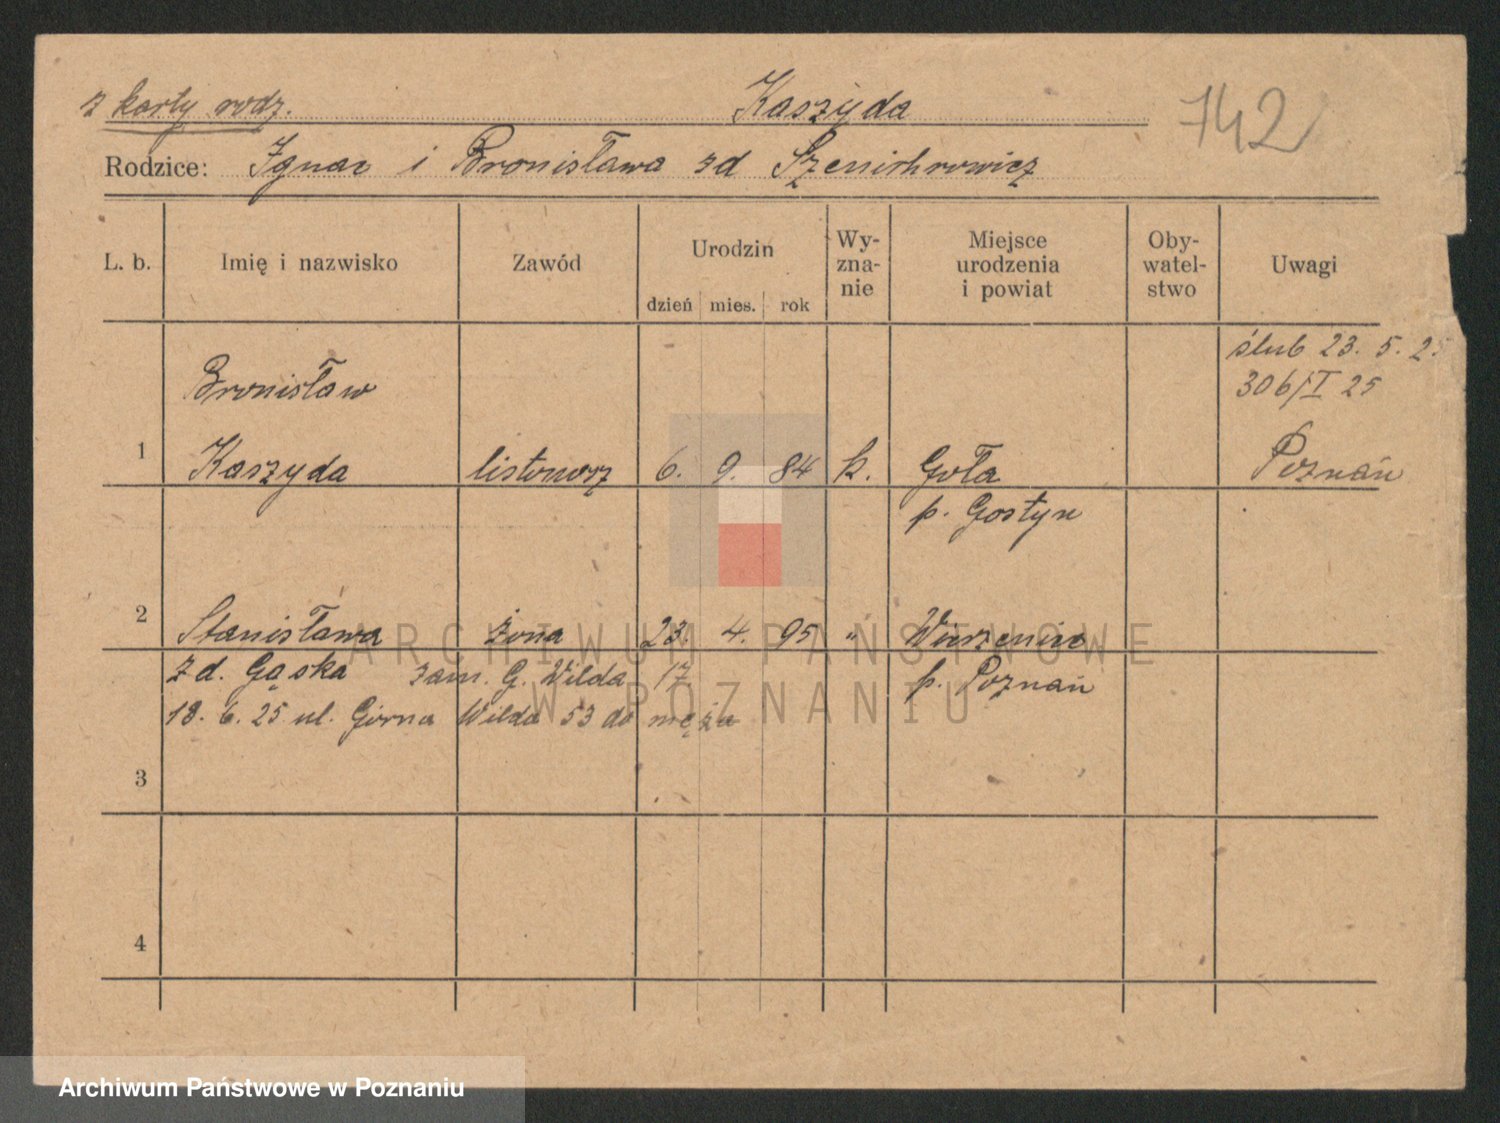 z karty rodz. Kaszyda 742
Rodzice: Ignac i Bronisława zd
L. b. Imię i nazwisko Zawód Urodzin dzień mies. rok Wy-zna-nie Miejsce urodzenia i powiat Oby-watel-stwo Uwagi
ślub 23. 5. 25
Bronisław 306/I 25
1 Kaszyda listonosz 6. 9. 84 k. Goła Poznań
p. Gostyn
2 Stanisława żona 23. 4. 95 " Wierzenica
zd. Gąska zam. G. Wilda 17 p. Poznań
18. 6. 25 ul. Górna Wilda 53 do męża
3
4
ARCHIWUM PAŃSTWOWE
W POZNANIU
Archiwum Państwowe w Poznaniu